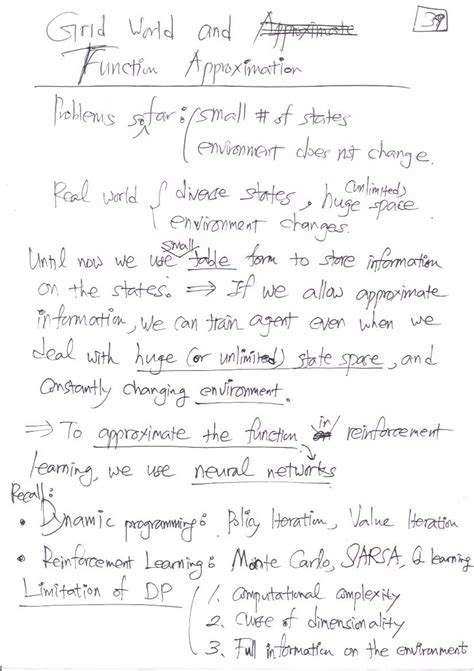 Grid World and Approximate
39
Function Approximation
Problems so far: small # of states
environment does not change.
Real world diverse states, huge (unlimited) space
environment changes.
Until now we use small table form to store information
on the states. ⇒ If we allow approximate
information, we can train agent even when we
deal with huge (or unlimited) state space, and
constantly changing environment.
⇒ To approximate the function in reinforcement
learning, we use neural networks
Recall:
• Dynamic programming: Policy Iteration, Value Iteration
• Reinforcement Learning: Monte Carlo, SARSA, Q learning
Limitation of DP
1. Computational complexity
2. Curse of dimensionality
3. Full information on the environment